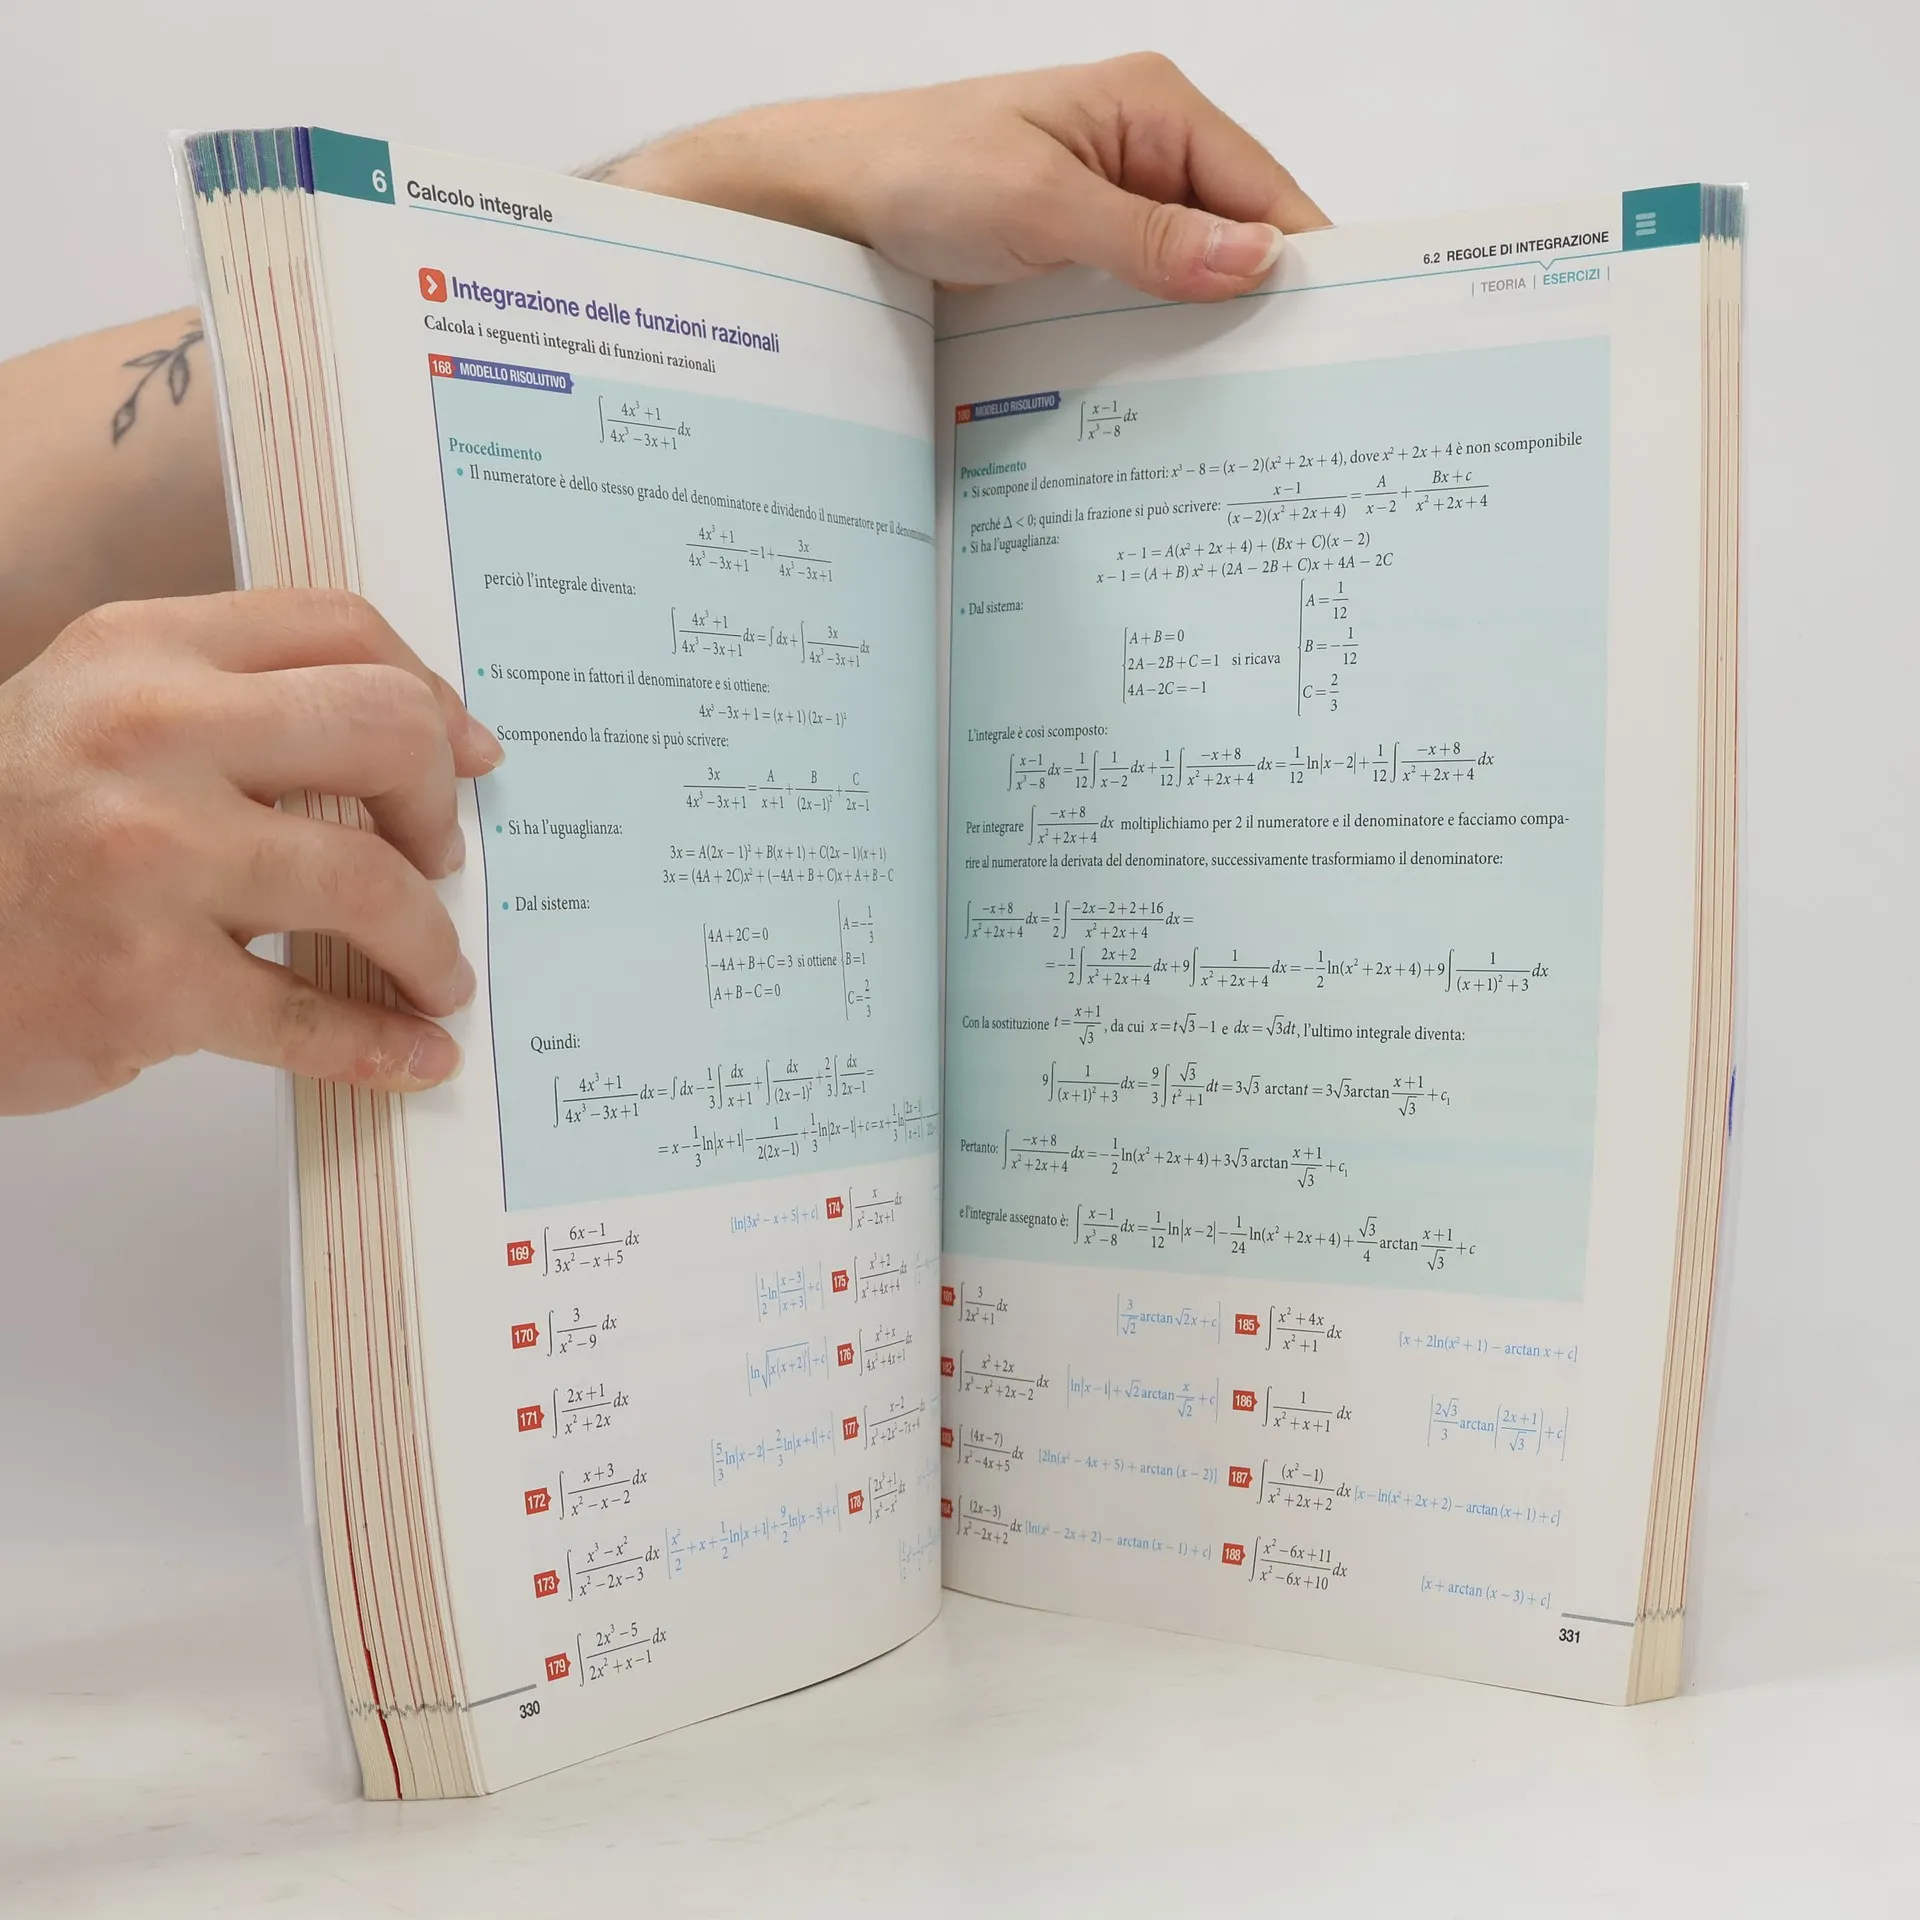 6 Calcolo integrale
Integrazione delle funzioni razionali
Calcola i seguenti integrali di funzioni razionali
168 MODELLO RISOLUTIVO
∫ (4x³+1)/(4x³−3x+1) dx
Procedimento
• Il numeratore è dello stesso grado del denominatore e dividendo il numeratore per il
(4x³+1)/(4x³−3x+1) = 1 + 3x/(4x³−3x+1)
perciò l'integrale diventa:
∫ (4x³+1)/(4x³−3x+1) dx = ∫ dx + ∫ 3x/(4x³−3x+1) dx
• Si scompone in fattori il denominatore e si ottiene:
4x³ − 3x + 1 = (x + 1) (2x − 1)²
Scomponendo la frazione si può scrivere:
3x/(4x³−3x+1) = A/(x+1) + B/(2x−1)² + C/(2x−1)
• Si ha l'uguaglianza:
3x = A(2x − 1)² + B(x + 1) + C(2x − 1)(x + 1)
3x = (4A + 2C)x² + (−4A + B + C)x + A + B − C
• Dal sistema:
4A+2C=0 A=−1/3
−4A+B+C=3 si ottiene B=1
A+B−C=0 C=2/3
Quindi:
∫ (4x³+1)/(4x³−3x+1) dx = ∫ dx − 1/3 ∫ dx/(x+1) + ∫ dx/(2x−1)² + 2/3 ∫ dx/(2x−1) =
= x − 1/3 ln|x+1| − 1/(2(2x−1)) + 1/3 ln|2x−1| + c = x + 1/3 ln|(2x−1)/(x+1)|
169 ∫ (6x−1)/(3x²−x+5) dx [ln|3x² − x + 5| + c]
170 ∫ 3/(x²−9) dx [1/2 ln|(x−3)/(x+3)| + c]
171 ∫ (2x+1)/(x²+2x) dx
172 ∫ (x+3)/(x²−x−2) dx [5/3 ln|x−2| − 2/3 ln|x+1| + c]
173 ∫ (x³−x²)/(x²−2x−3) dx [x²/2 + x + 1/2 ln|x+1| + 9/2 ln|x−3| + c]
179 ∫ (2x³−5)/(2x²+x−1) dx
174 ∫ x/(x²−2x+1) dx
175 ∫ (x³+2)/(x²+4x+4) dx
176 ∫ (x²+x)/(4x²+4x+1) dx
177 ∫ (x−2)/(x³+2x²−7x+4) dx
178 ∫ (2x³+1)/(x³−x²) dx
330
6.2 REGOLE DI INTEGRAZIONE
| TEORIA | ESERCIZI |
180 MODELLO RISOLUTIVO
∫ (x−1)/(x³−8) dx
Procedimento
• Si scompone il denominatore in fattori: x³ − 8 = (x − 2)(x² + 2x + 4), dove x² + 2x + 4 è non scomponibile
perché Δ < 0; quindi la frazione si può scrivere: (x−1)/((x−2)(x²+2x+4)) = A/(x−2) + (Bx+c)/(x²+2x+4)
• Si ha l'uguaglianza:
x − 1 = A(x² + 2x + 4) + (Bx + C)(x − 2)
x − 1 = (A + B) x² + (2A − 2B + C)x + 4A − 2C
• Dal sistema:
A+B=0 A=1/12
2A−2B+C=1 si ricava B=−1/12
4A−2C=−1 C=2/3
L'integrale è così scomposto:
∫ (x−1)/(x³−8) dx = 1/12 ∫ 1/(x−2) dx + 1/12 ∫ (−x+8)/(x²+2x+4) dx = 1/12 ln|x−2| + 1/12 ∫ (−x+8)/(x²+2x+4) dx
Per integrare ∫ (−x+8)/(x²+2x+4) dx moltiplichiamo per 2 il numeratore e il denominatore e facciamo compa-
rire al numeratore la derivata del denominatore, successivamente trasformiamo il denominatore:
∫ (−x+8)/(x²+2x+4) dx = 1/2 ∫ (−2x−2+2+16)/(x²+2x+4) dx =
= −1/2 ∫ (2x+2)/(x²+2x+4) dx + 9 ∫ 1/(x²+2x+4) dx = −1/2 ln(x²+2x+4) + 9 ∫ 1/((x+1)²+3) dx
Con la sostituzione t = (x+1)/√3, da cui x=t√3−1 e dx=√3dt, l'ultimo integrale diventa:
9 ∫ 1/((x+1)²+3) dx = 9/3 ∫ √3/(t²+1) dt = 3√3 arctant = 3√3arctan (x+1)/√3 + c₁
Pertanto: ∫ (−x+8)/(x²+2x+4) dx = −1/2 ln(x²+2x+4) + 3√3 arctan (x+1)/√3 + c₁
e l'integrale assegnato è: ∫ (x−1)/(x³−8) dx = 1/12 ln|x−2| − 1/24 ln(x²+2x+4) + √3/4 arctan (x+1)/√3 + c
181 ∫ 3/(2x²+1) dx [3/√2 arctan √2x + c]
182 ∫ (x²+2x)/(x³−x²+2x−2) dx [ln|x−1| + √2 arctan x/√2 + c]
183 ∫ (4x−7)/(x²−4x+5) dx [2ln(x² − 4x + 5) + arctan (x − 2)]
184 ∫ (2x−3)/(x²−2x+2) dx [ln(x² − 2x + 2) − arctan (x − 1) + c]
185 ∫ (x²+4x)/(x²+1) dx [x + 2ln(x² + 1) − arctan x + c]
186 ∫ 1/(x²+x+1) dx [2√3/3 arctan((2x+1)/√3) + c]
187 ∫ (x²−1)/(x²+2x+2) dx [x − ln(x² + 2x + 2) − arctan (x + 1) + c]
188 ∫ (x²−6x+11)/(x²−6x+10) dx [x + arctan (x − 3) + c]
331